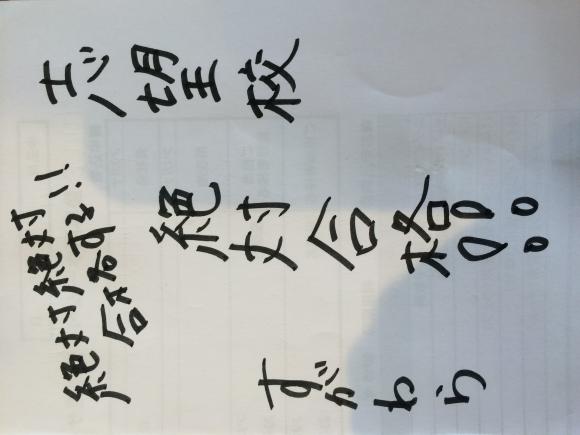 絶対絶対
合格する!!
志望校
絶対合格!!
すがわら